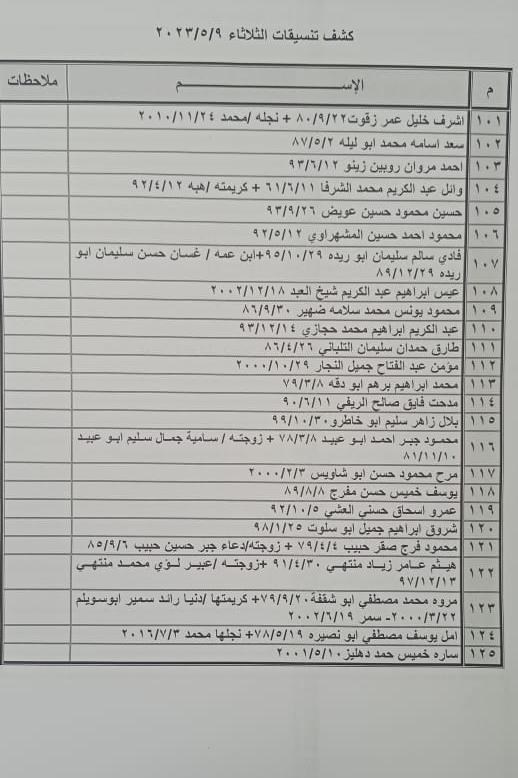 كشف تنسيقات الثلاثاء ٢٠٢٣/٥/٩
م الإســـــم ملاحظات
١٠١ اشرف خليل عمر زقوت ٨٠/٩/٢٢ + نجله /محمد ٢٠١٠/١١/٢٤
١٠٢ سعد اسامه محمد ابو ليله ٨٧/٥/٢
١٠٣ احمد مروان روبين زينو ٩٣/٦/١٢
١٠٤ وائل عبد الكريم محمد الشرفا ٦١/٦/١١ + كريمته /هبه ٩٢/٤/١٢
١٠٥ حسين محمود حسين عويض ٩٣/٩/٢٦
١٠٦ محمود احمد حسين المشهراوي ٩٢/٥/١٢
١٠٧ فادي سالم سليمان ابو ريده ٩٥/١٠/٢٩+ابن عمه / غسان حسن سليمان ابو
ريده ٨٩/١٢/٢٩
١٠٨ عيس ابراهيم عبد الكريم شيخ العبد ٢٠٠٢/١٢/١٨
١٠٩ محمود يونس محمد سلامه ضهير ٨٦/٩/٣٠
١١٠ عبد الكريم ابراهيم محمد حجازي ٩٣/١٢/١٤
١١١ طارق حمدان سليمان التلباني ٨٦/٤/٢٦
١١٢ مؤمن عبد الفتاح جميل النجار ٢٠٠٠/١٠/٢٩
١١٣ محمد ابراهيم برهم ابو دقه ٧٩/٣/٨
١١٤ مدحت فايق صالح الريفي ٩٠/٦/١١
١١٥ بلال زاهر سليم ابو خاطر ٩٩/١٠/٣٠
١١٦ محمود جبر احمد ابو عبيد ٧٨/٣/٨ + زوجته / سامية جمال سليم ابو عبيد
٨١/١١/١٠
١١٧ مرح محمود حسن ابو شاويس ٢٠٠٠/٢/٣
١١٨ يوسف خميس حسن مفرج ٨٩/٨/٨
١١٩ عمرو اسحاق حسني العشي ٩٢/١٠/٥
١٢٠ شروق ابراهيم جميل ابو سلوت ٩٨/١/٢٥
١٢١ محمود فرج صقر حبيب ٧٩/٤/٤ + زوجته/دعاء جبر حسين حبيب ٨٥/٩/٦
١٢٢ هيثم عامر زياد منتهي ٩١/٤/٣٠ +زوجته /عبير لؤي محمد منتهي
٩٧/١٢/١٣
١٢٣ مروه محمد مصطفي ابو شقفة ٧٩/٩/٢٠+ كريمتها /دنيا رائد سمير ابوسويلم
٢٠٠٠/٣/٢٢- سمر ٢٠٠٢/٦/١٩
١٢٤ امل يوسف مصطفي ابو نصيره ٧٨/٥/١٩+ نجلها محمد ٢٠١٦/٧/٣
١٢٥ ساره خميس حمد دهليز ٢٠٠١/٥/١٠